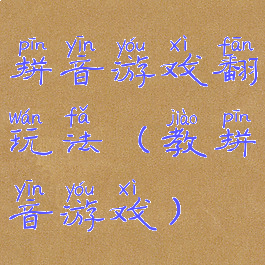 pīn yīn yóu xì fān
拼音游戏翻
wán fǎ jiào pīn
玩法（教拼
yīn yóu xì
音游戏）